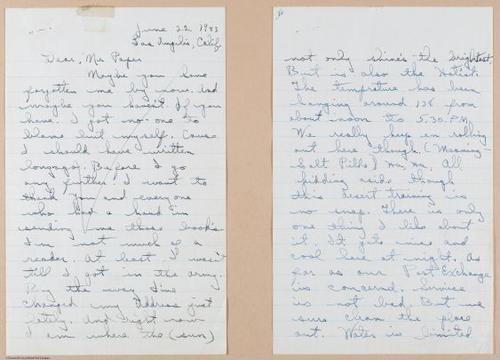 June 22 1943
Los Angeles, Calif
Dear, Mr Peper
Maybe you have
forgotten me by now. And
maybe you haven't. If you
have. I got no-one to
blame but myself. Cause
I should have written
long ago. Before I go
any further. I want to
thank you and everyone
who had a hand in
sending me those books
I'm not much of a
reader. At least I wasn't
till I got in the army.
By the way I've
changed my address just
lately. And right now
I am where the (sun)
not only shines the brightest.
But is also the hottest.
The temperature has been
hanging around 138 from
about noon to 5.30.P.M.
We really keep em rolling
out here though (Meaning
Salt Pills) All
kidding aside though
this desert training is
no snap. There is only
one thing I like about
it. It gets nice and
cool here at night. As
far as our Post Exchange
is concerned. Service
is not bad. But we
sure clean the place
out. Water is limited